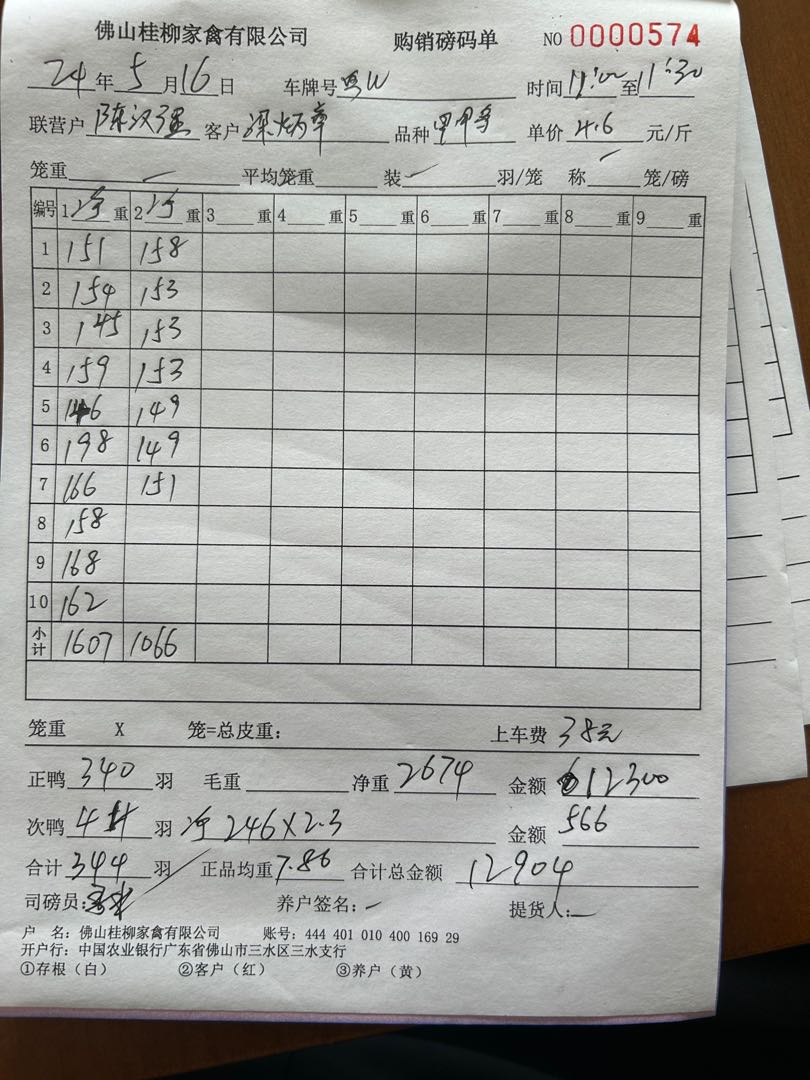 佛山桂柳家禽有限公司 购销磅码单 NO 0000574
24年5月16日 车牌号 时间11:00至11:30
联营户陈汉强 客户梁炳章 品种 单价4.6元/斤
笼重— 平均笼重 装 羽/笼 称 笼/磅
编号 1净重 2净重 3重 4重 5重 6重 7重 8重 9重
1 151 158
2 154 153
3 145 153
4 159 153
5 146 149
6 198 149
7 166 151
8 158
9 168
10 162
小计 1607 1066
笼重 X 笼=总皮重: 上车费 38元
正鸭340羽 毛重 净重2674 金额12300
次鸭4羽 净246X2.3 金额566
合计344羽 正品均重7.86 合计总金额12904
司磅员: 养户签名:— 提货人:—
户 名: 佛山桂柳家禽有限公司 账号: 444 401 010 400 169 29
开户行: 中国农业银行广东省佛山市三水区三水支行
①存根（白） ②客户（红） ③养户（黄）